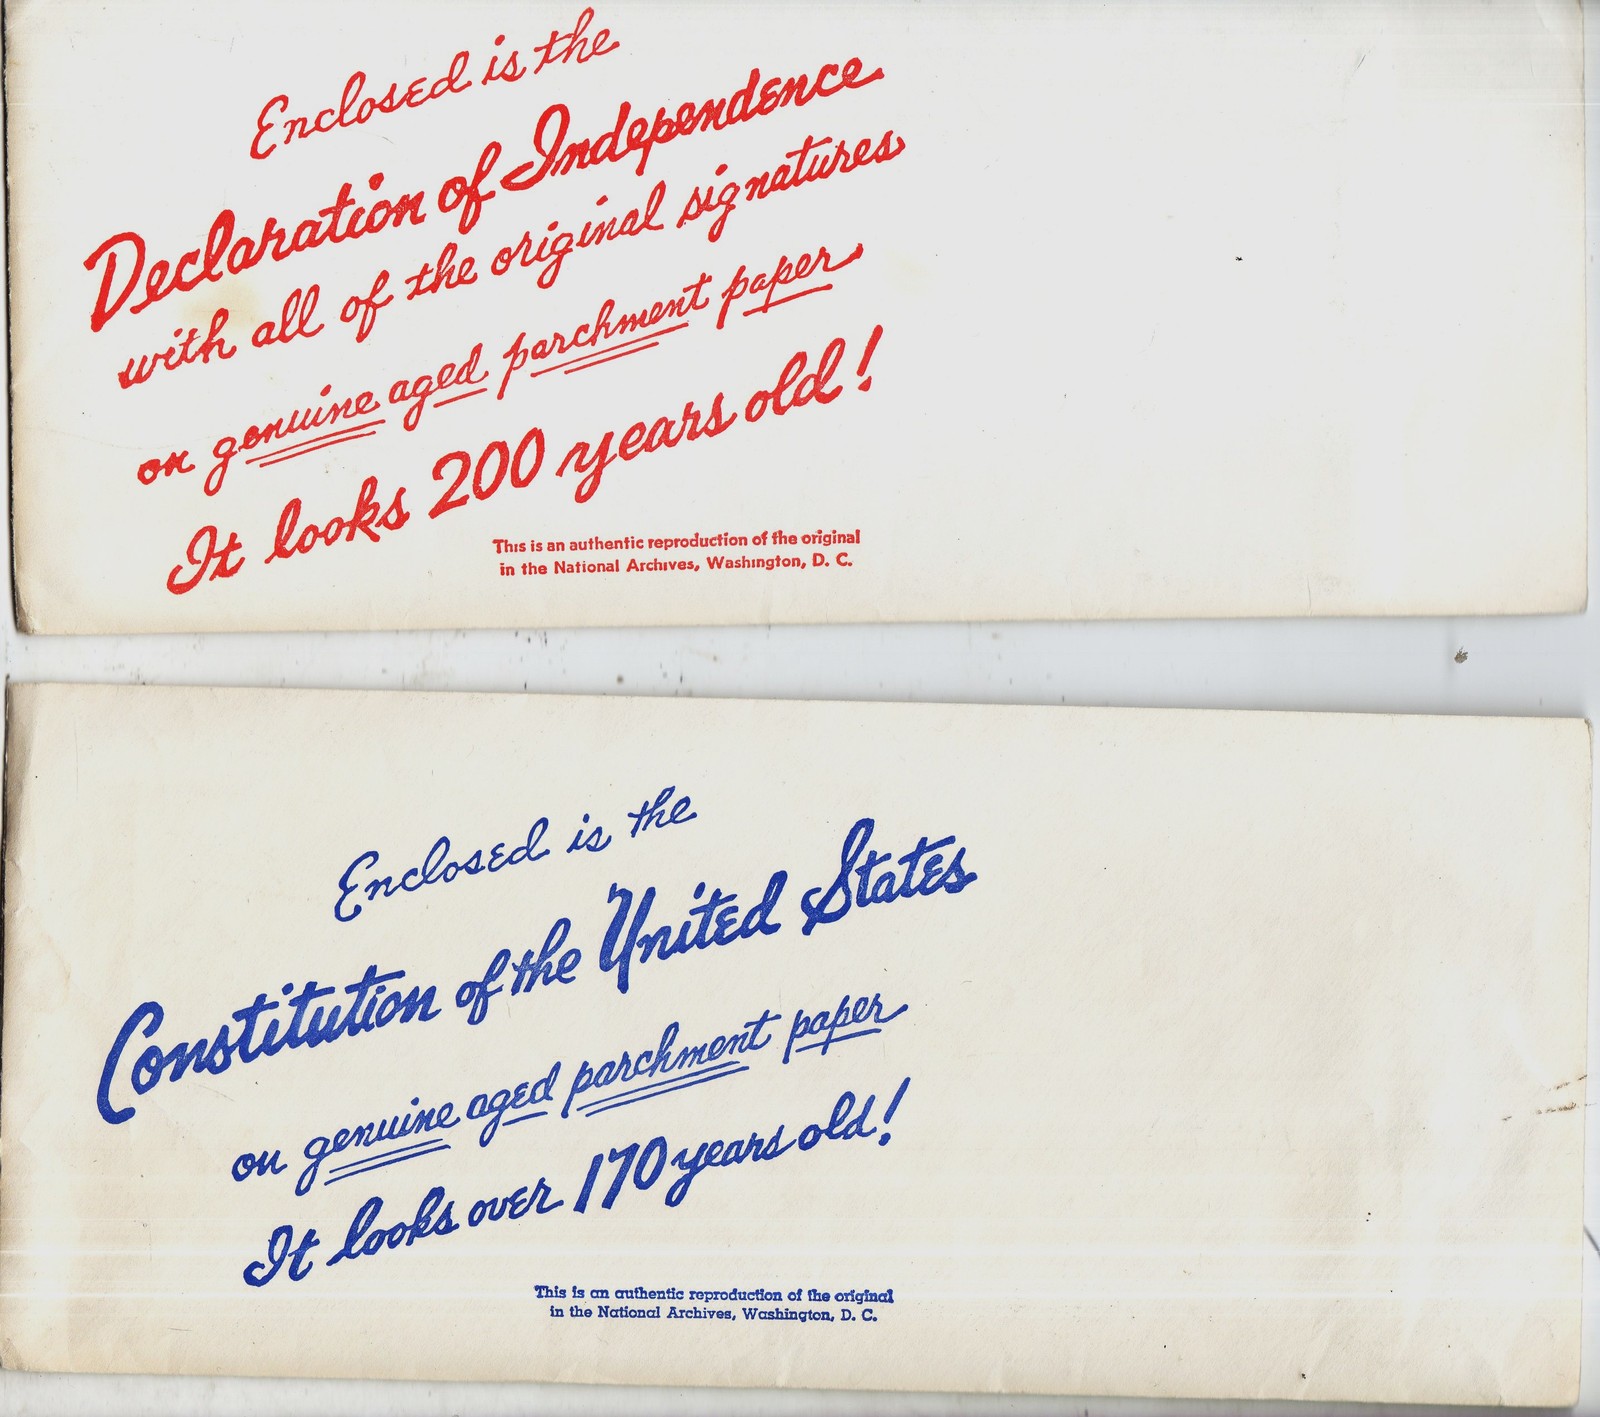 Enclosed is the
Declaration of Independence
with all of the original signatures
on genuine aged parchment paper
It looks 200 years old!
This is an authentic reproduction of the original
in the National Archives, Washington, D. C.
Enclosed is the
Constitution of the United States
on genuine aged parchment paper
It looks over 170 years old!
This is an authentic reproduction of the original
in the National Archives, Washington, D. C.